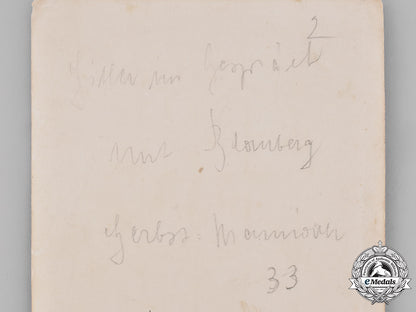 2
Hitler im Gespräch
mit Blomberg
Herbst-Manöver
33
eMedals